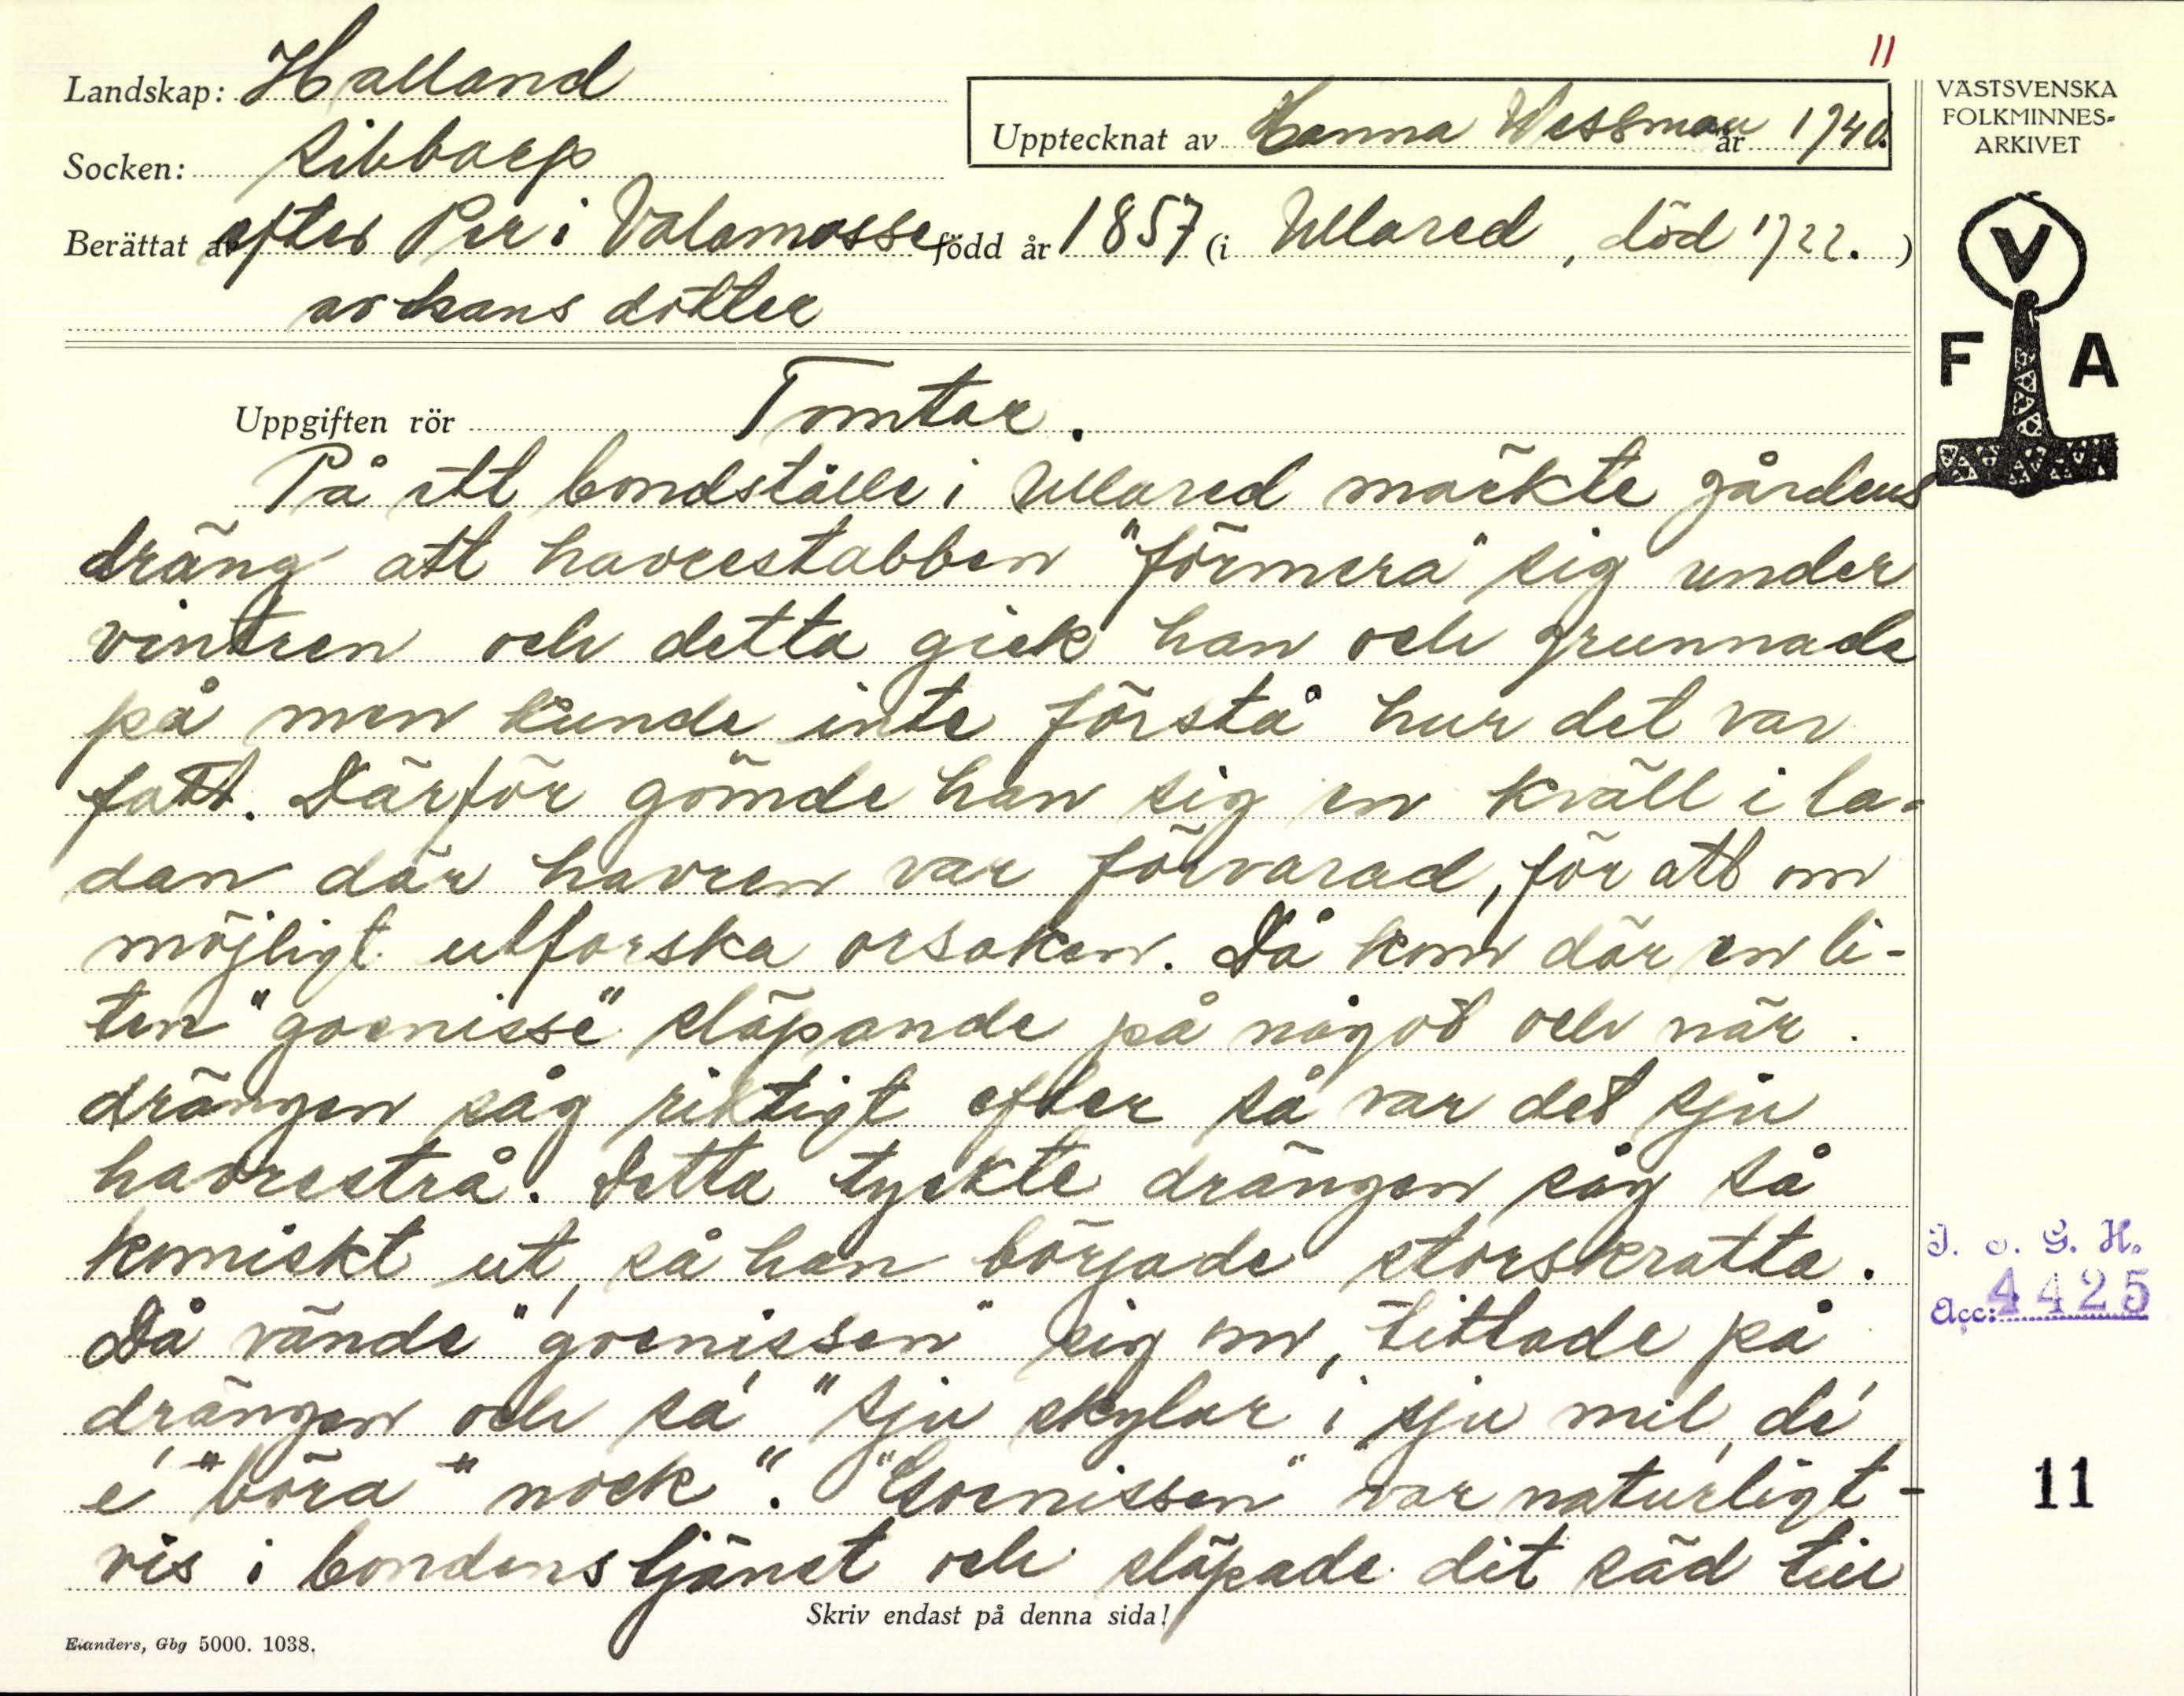 11
Landskap: Halland
Upptecknat av Hanna Wessman år 1940.
Socken: Sibbarp
Berättat av efter Per i Valamosse född år 1857 (i Ullared, död 1922. )
av hans dotter
VÄSTSVENSKA
FOLKMINNES-
ARKIVET
V
F A
Uppgiften rör Tomtar.
På ett bondställe i Ullared märkte gårdens
dräng att havrestabben "förmera" sig under
vintren och detta gick han och grunnade
på men kunde inte förstå hur det var
fatt. Därför gömde han sig en kväll i la-
dan där havren var förvarad, för att om
möjligt utforska orsaken. Då kom där en li-
ten "goenisse" släpande på något och när
drängen såg riktigt efter så var det sju
havrestrå. Detta tyckte drängen såg så
komiskt ut, så han började storskratta.
Då vände "goenissen" sig om, tittade på
drängen och sa', "sju skylar i sju mil, de'
e' "böra" nock". "Goenissen" var naturligt-
vis i bondens tjänst och släpade dit säd till
Skriv endast på denna sida!
Elanders, Gbg 5000. 1038.
I. o. G. H.
Acc: 4425
11